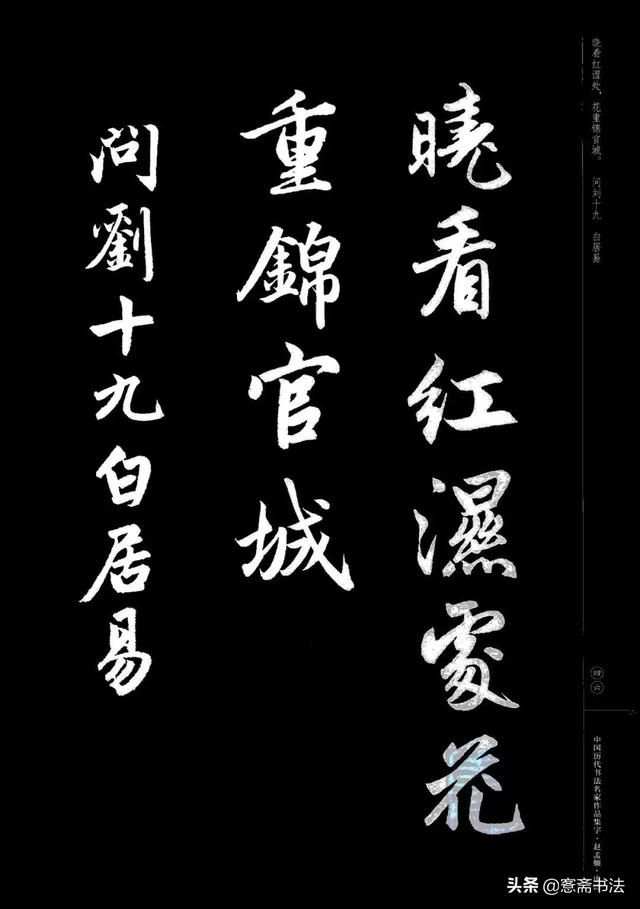 晓看红湿处,花重锦官城。 问刘十九 白居易
曉看紅濕處花
重錦官城
問劉十九白居易
四六
中国历代书法名家作品集字·赵孟頫·
头条@窓斋书法